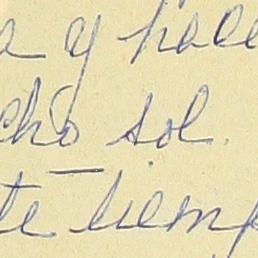 a y hace
cho sol.
te tiemp